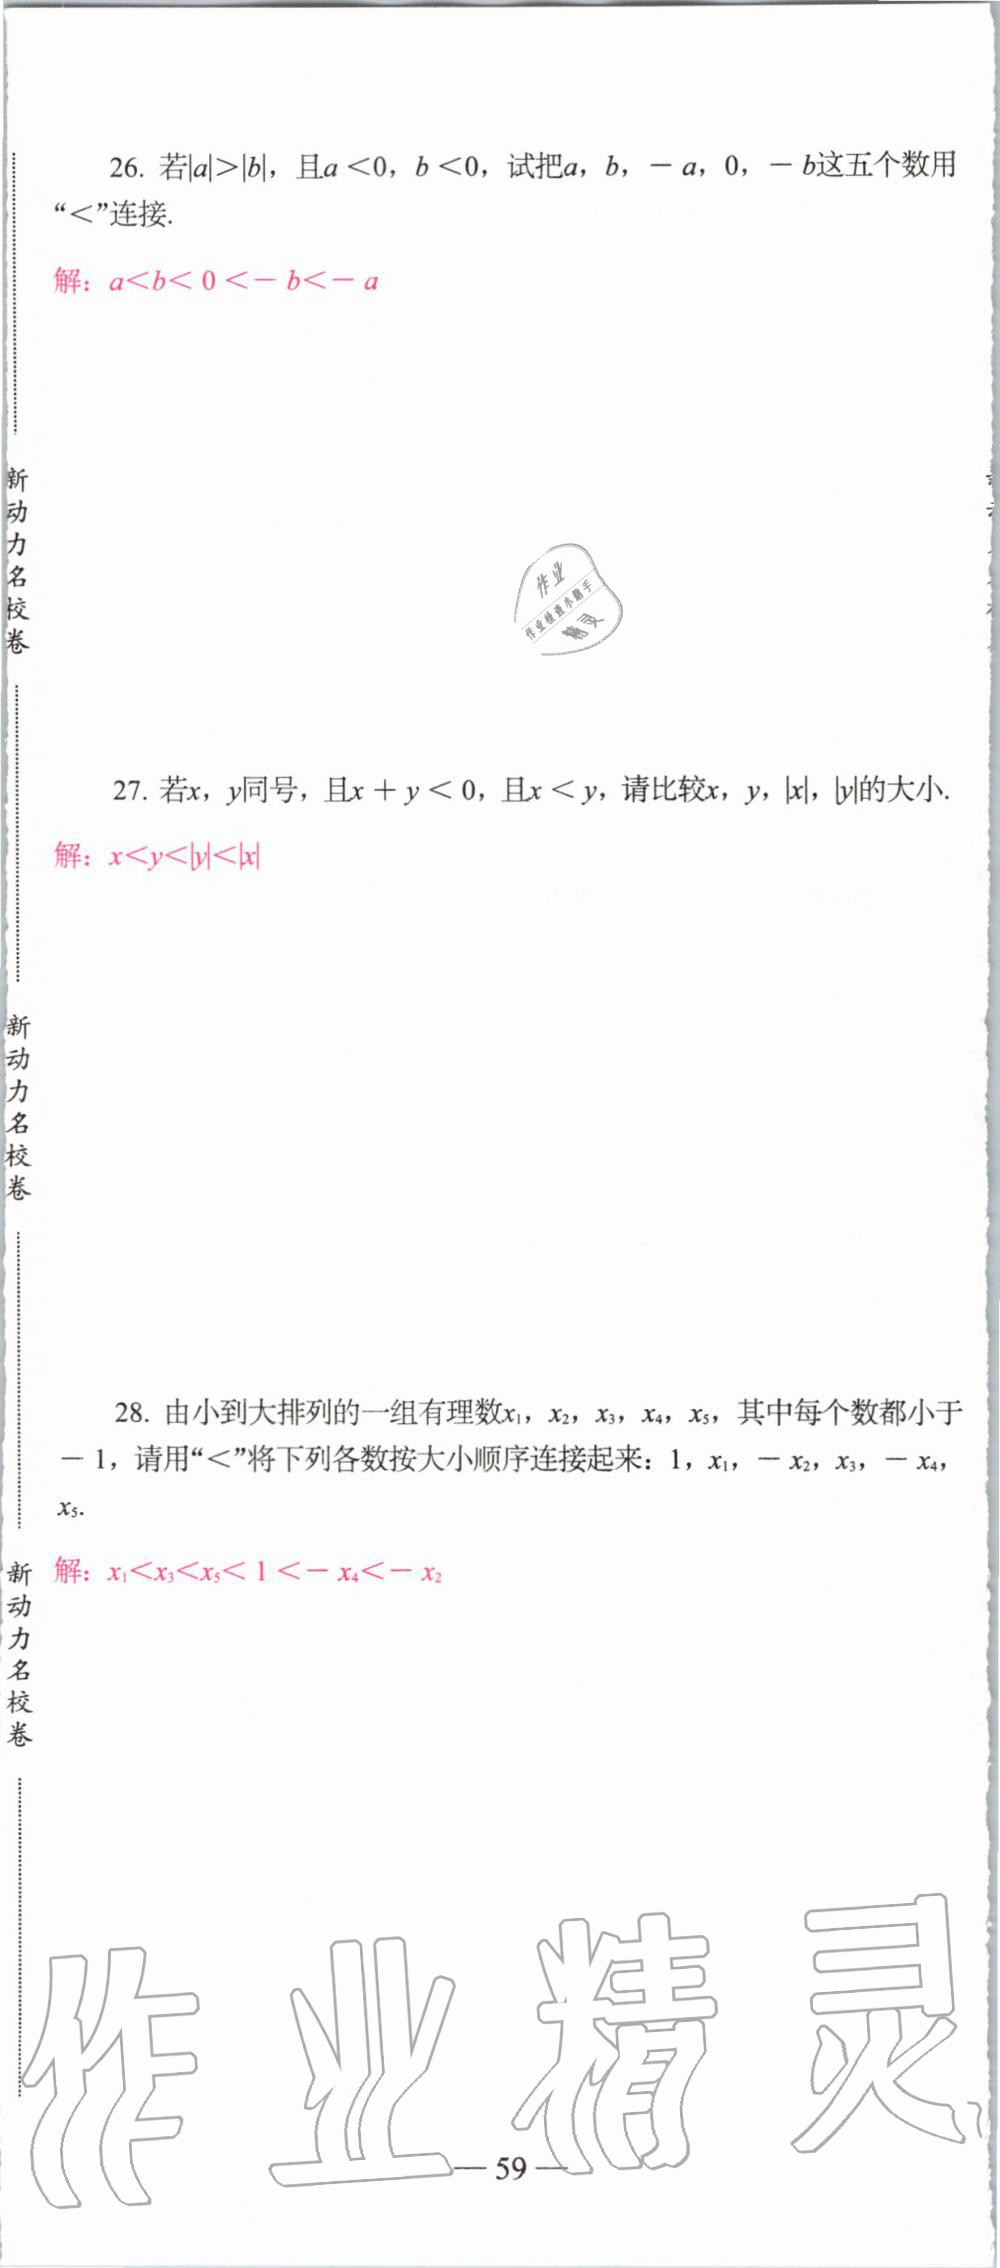 26. 若|a|＞|b|，且a＜0，b＜0，试把a，b，－a，0，－b这五个数用
“＜”连接.
解：a＜b＜0＜－b＜－a
作业
作业检查小助手
精灵
27. 若x，y同号，且x＋y＜0，且x＜y，请比较x，y，|x|，|y|的大小.
解：x＜y＜|y|＜|x|
28. 由小到大排列的一组有理数x₁，x₂，x₃，x₄，x₅，其中每个数都小于
－1，请用“＜”将下列各数按大小顺序连接起来：1，x₁，－x₂，x₃，－x₄，
x₅.
解：x₁＜x₃＜x₅＜1＜－x₄＜－x₂
新动力名校卷
新动力名校卷
新动力名校卷
作业精灵
— 59 —